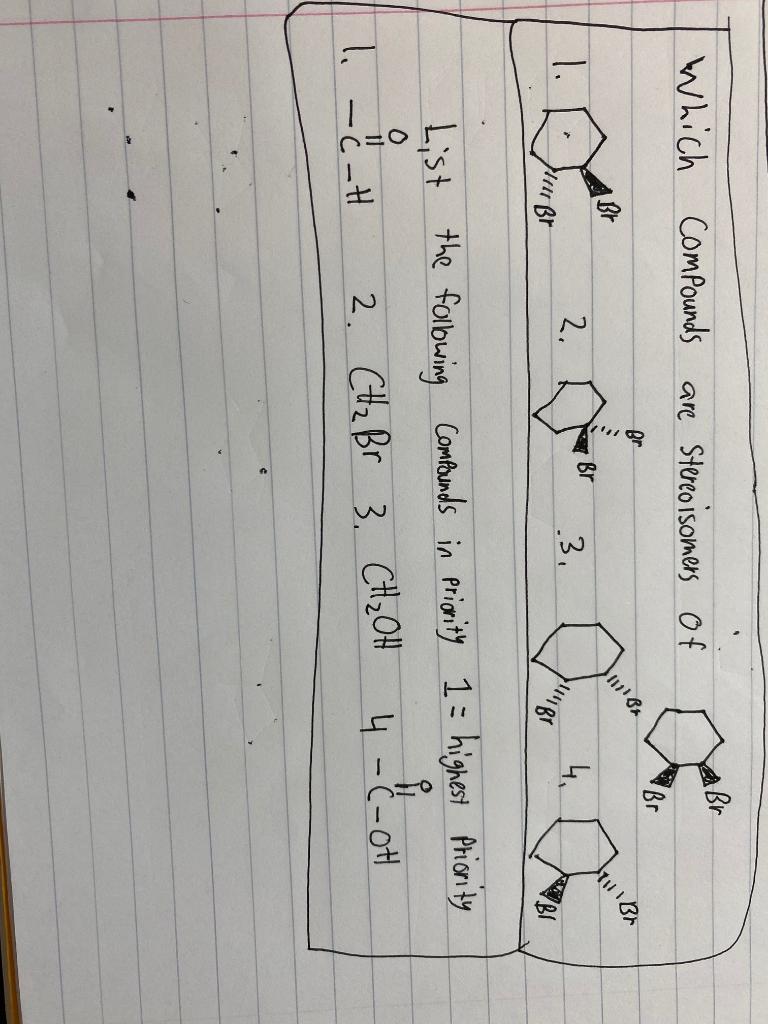 Which Compounds are Stereoisomers of
Br
Br
1.
Br
Br
2.
Br
Br
3.
Br
Br
4.
Br
Br
List the following compounds in priority 1 = highest Priority
1. -C-H
O
2. CH₂Br 3. CH₂OH 4 -C-OH
O